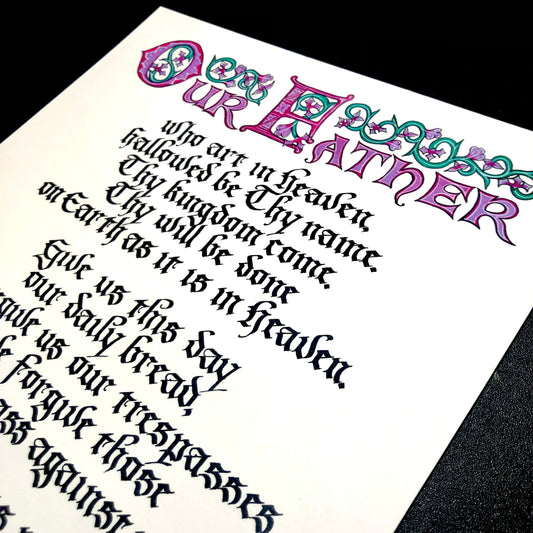 OUR FATHER
who art in Heaven,
hallowed be Thy name.
Thy kingdom come.
Thy will be done
on Earth as it is in Heaven.
Give us this day
our daily bread,
us our trespasses
forgive those
against